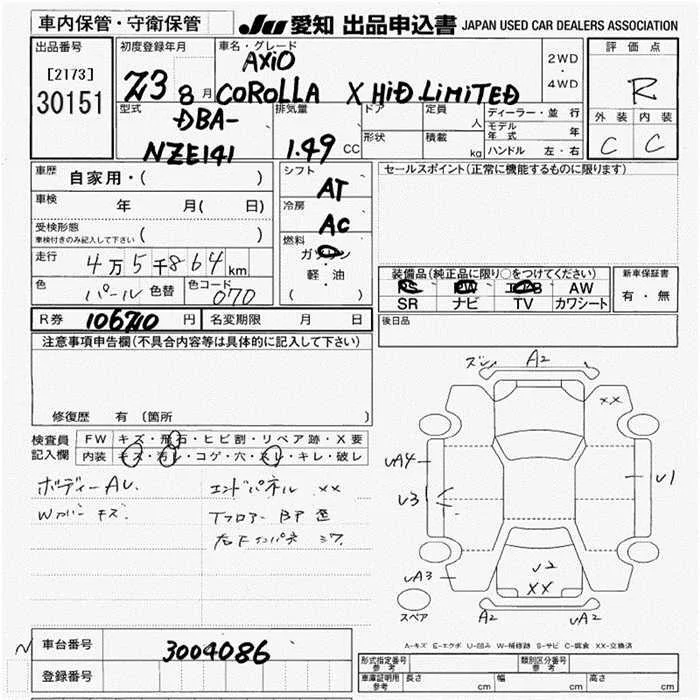 車内保管・守衛保管
JU 愛知 出品申込書 JAPAN USED CAR DEALERS ASSOCIATION
出品番号
[2173]
30151
初度登録年月
Z3 8月
車名・グレード
AXiO
COROLLA X HiD LiMiTED
2WD
・
4WD
評価点
R
外装 内装
C C
型式
DBA-
NZE141
排気量
1.49 CC
ドア
形状
定員 人
積載 kg
ディーラー・並行
モデル年式 年
ハンドル 左・右
車歴 自家用・( )
車検 年 月( 日)
受検形態
車検付きのみ記入して下さい ( )
走行 4万5千864km
色 パール 色替 色コード 070
シフト
AT
冷房
AC
燃料
ガソリン
・
軽・油
( )
セールスポイント(正常に機能するものに限ります)
装備品(純正品に限り○をつけてください)
PS PW エアB AW
SR ナビ TV カワシート
新車保証書
有・無
R券 106710 円 名変期限 月 日
後日品
注意事項申告欄(不具合内容等は具体的に記入して下さい)
修復歴 有 〔箇所 〕
検査員
記入欄
FW キズ・飛石・ヒビ割・リペア跡・X要
内装 キズ・汚レ・コゲ・穴・スレ・キレ・破レ
ボディーAU. エンドパネル XX
Wカバー キズ. Tフロアー BP 歪
右下インパネ
ズレ A2
XX
UA4
U3
U1
UA3
U2
XX
A2 UA2
スペア
A-キズ E-エクボ U-凹み W-補修跡 S-サビ C-腐食 XX-交換済
車台番号 3004086
登録番号
形式指定番号
参考
類別区分番号
参考
車庫証明用
参考
長さ cm 幅 cm 高さ cm